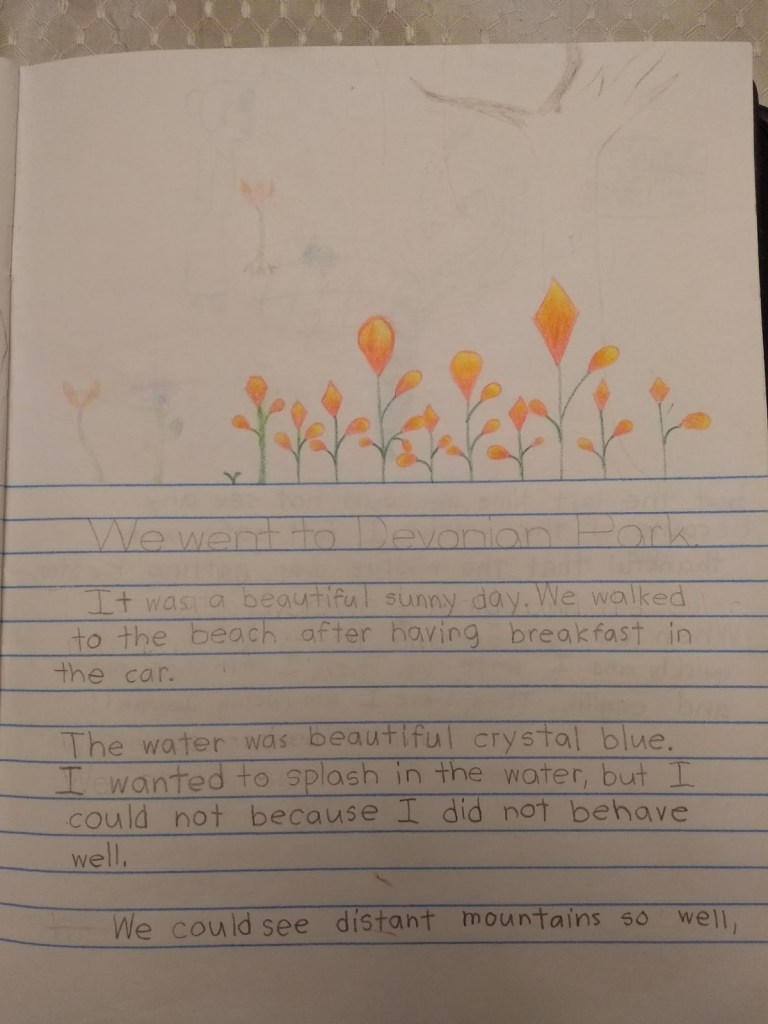 We went to Devonian Park.
It was a beautiful sunny day. We walked
to the beach after having breakfast in
the car.
The water was beautiful crystal blue.
I wanted to splash in the water, but I
could not because I did not behave
well.
We could see distant mountains so well,